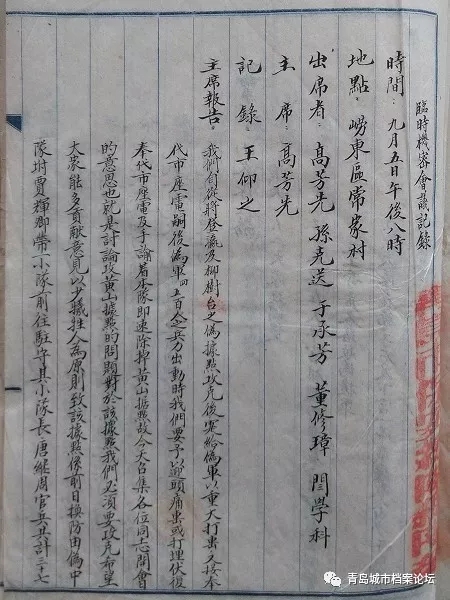 臨時機密會議記錄
時間：九月五日午後八時
地點：嶗東區常家村
出席者：高芳先 孫克送 于承芳 董修璋 閆學科
主席：高芳先
記錄：王仰之
主席報告：我們自從將登瀛及柳樹台之偽據點攻克後寔給偽軍以重大打出又接奉
代市座電嗣後偽軍四五百仝兵力出動時我們要予節頭痛出或打埋伏後
奉代市座電及手諭着本隊即速除掉黃山据點故今天召集各位同志開會
的意思也就是討論攻黃山據點的問題對於該據點我們必須要攻克希望
大家能多貢献意見以少犧牲人為原則致該據點係前日換防由偽中
隊坿賈輝卿帶一小隊前往駐守其小隊長唐継周官兵共計三十七
青岛城市档案论坛